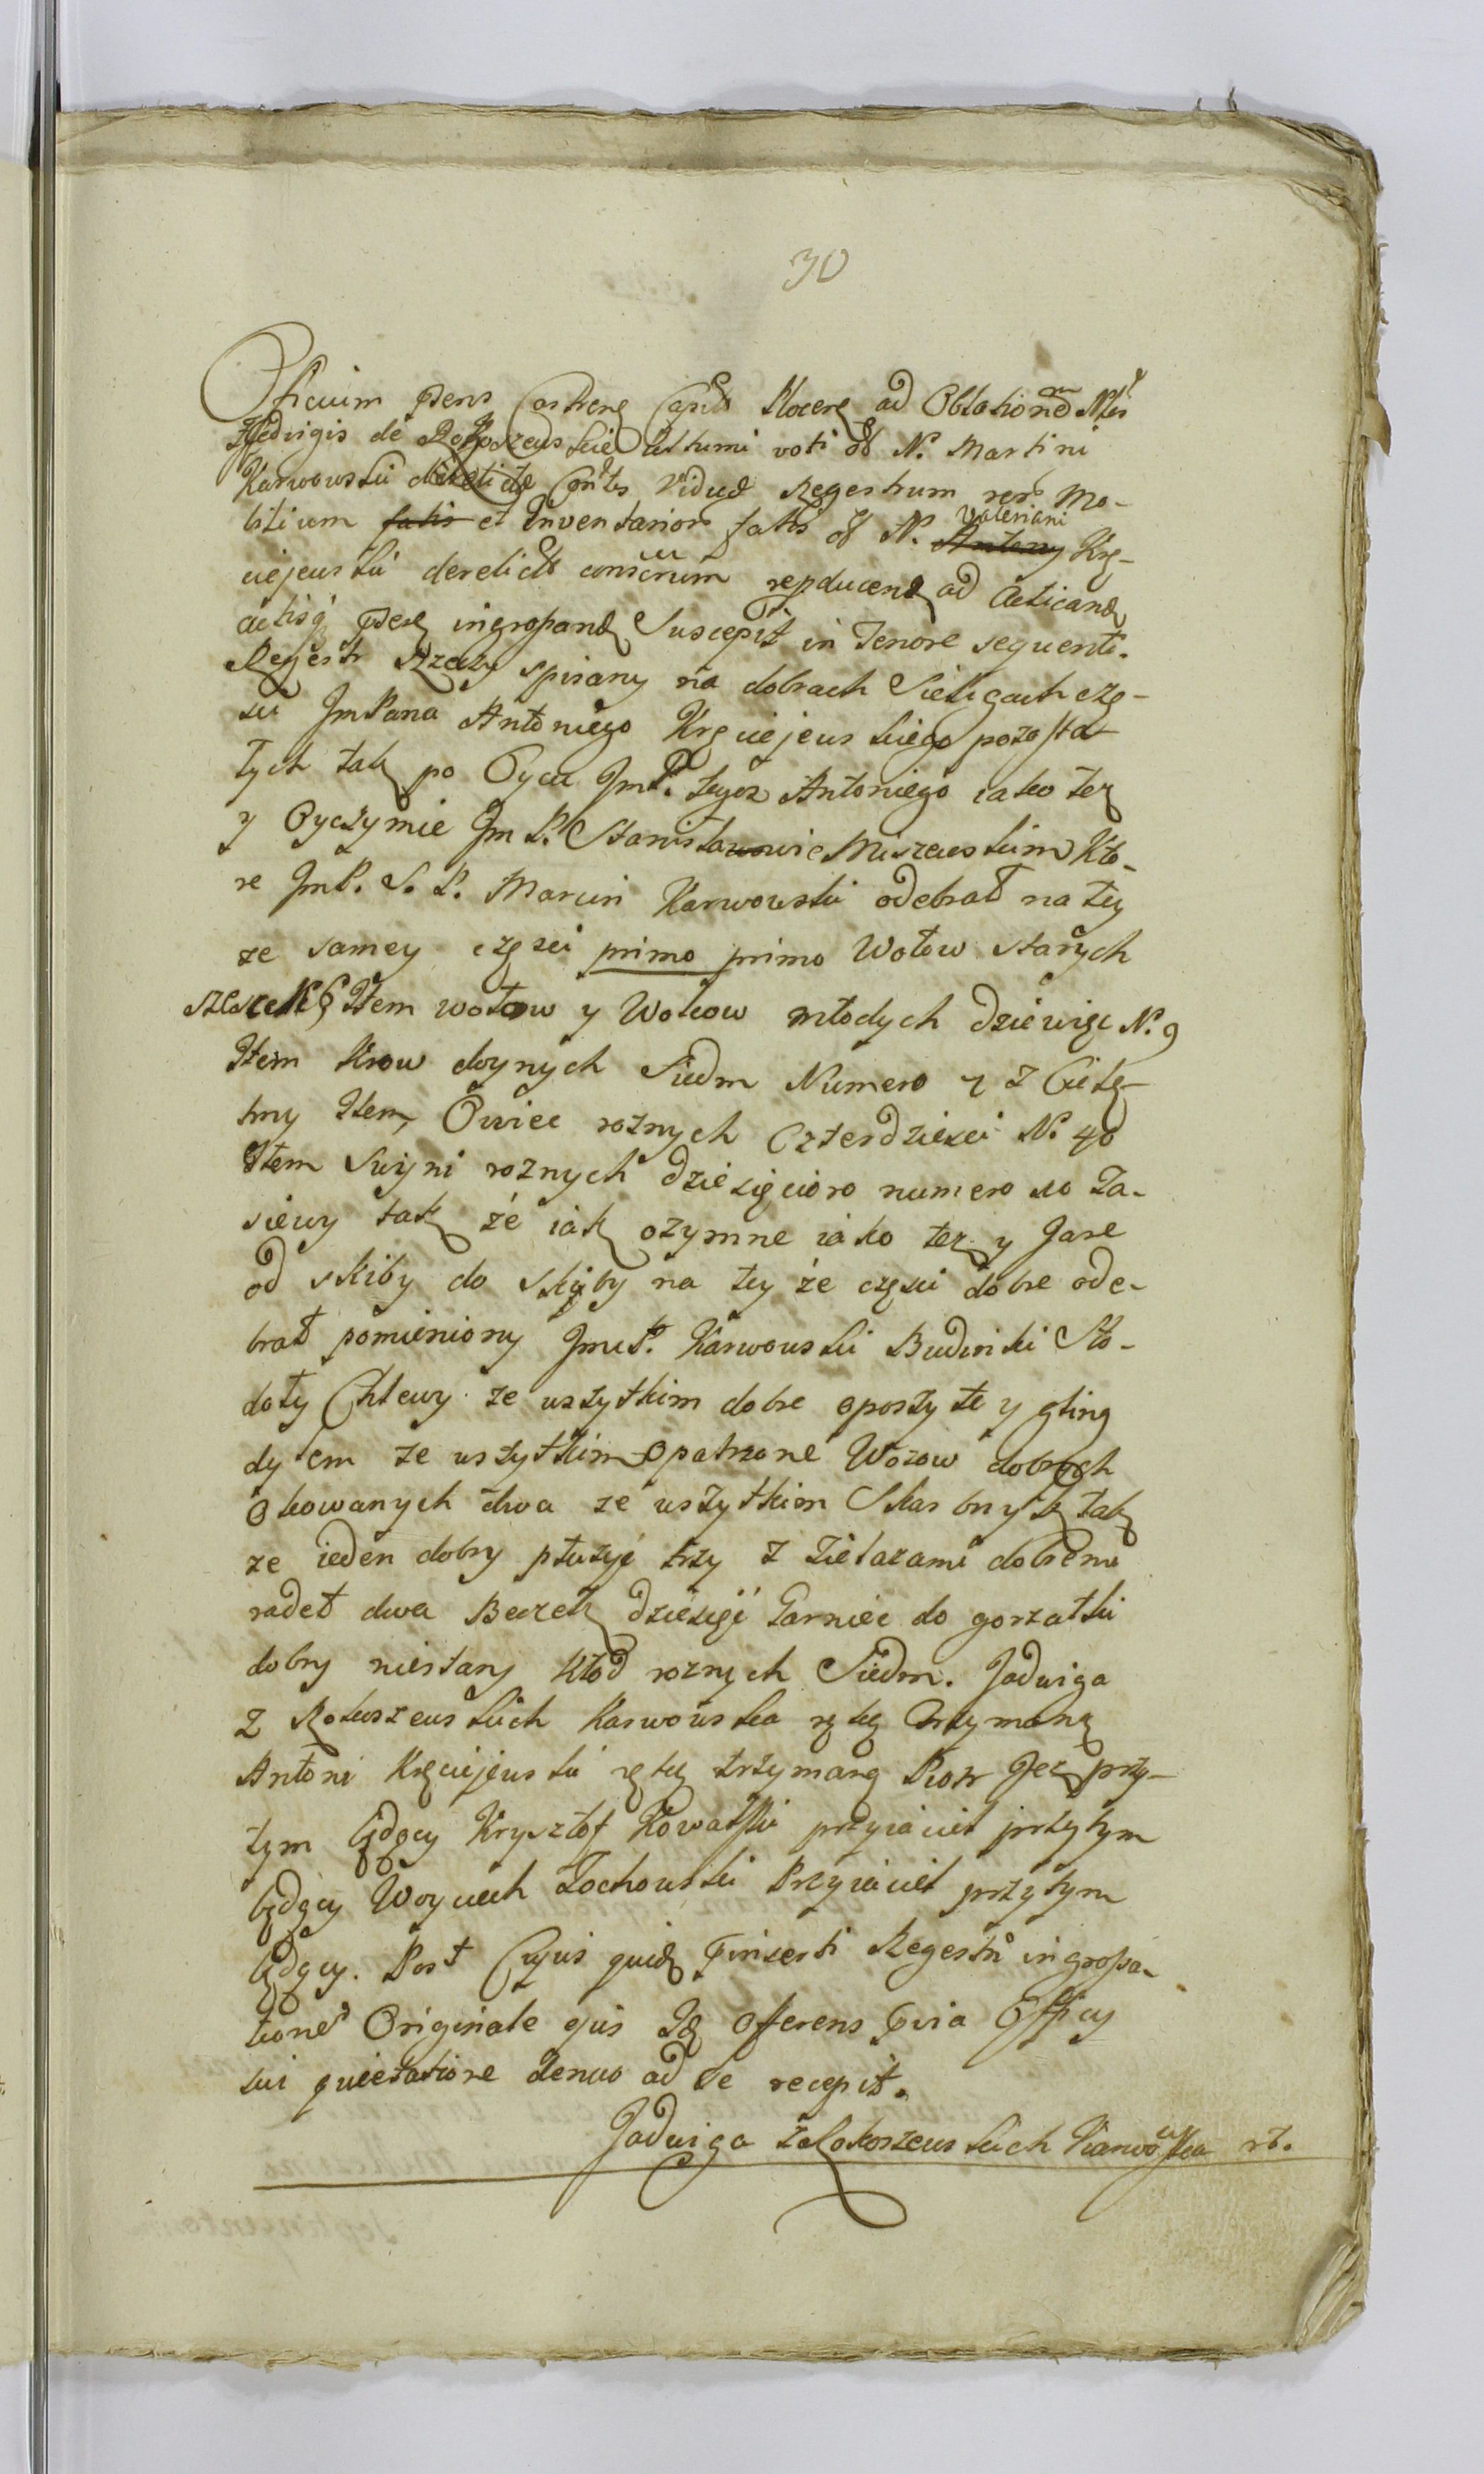 30
Officium Pens Castrene Capit ad Oblatione Nlis
Hedvigis de Rokoszewskie ultimi voti N. Martini
Karwowski derelictæ Contes Viduæ Regestrum rer Mo-
bilium fatis et Inventarior fatis N. Valeriani Antony Krę-
ciejewski derelict conscrium repducend ad Acticand
actisq ingropand Suscepit in Tenore sequenti.
Regestr Rzeczy spisany na dobrach Sieligach czę-
sci JmPana Antoniego Kręciejewskiego pozosta-
łych tak po Oycu JmP. tegoz Antoniego iako tez
y Oyczymie Jm P. Stanisławowie Miszewskim Kto-
re JmP. S. P. Marcin Karwowski odebrał na tey
ze samey częsci primo primo Wołow starych
szesc N 6 Item wołow y Wolcow młodych dziewięc N. 9
Item Krow doynych Siedm Numero 7 z Cielę-
tmy Item, Owiec roznych Czterdziesci No 40
Item Swyni roznych dziesięcioro numero 10 Za-
siewy tak że iak ozymne iako tez y Jare
od skiby do skiby na tey że częsci dobre ode-
brał pomieniony JmcP. Karwowski Budinki Sto-
doły Chlewy ze wszytkim dobre oposzyte y gliną
dylem ze wszytkim opatrzone Wozow dobrych
Okowanych dwa ze wszytkim Skarbnyk tak
ze ieden dobry płużyc trzy z Zielazami dobremi
radeł dwa Beczek dziesięć Garniec do gorzałki
dobry niestary kłod roznych Siedm. Jadwiga
z Rokoszewskich Karwowska ręką trzymaną
Antoni Kręciejewski ręką trzymaną Piotr Jez przy-
tym będący Krysztof Kowalski przyiaciel przytym
będący Woyciech Zochowski Przyiaciel przytym
będący. Post Cujus quid Pinserti Regestri ingrossa-
tione Originale ejus Id Offerens Officy
sui quietatione denuo ad se recepit.
Jadwiga z Rokoszewskich Karwowska rt.